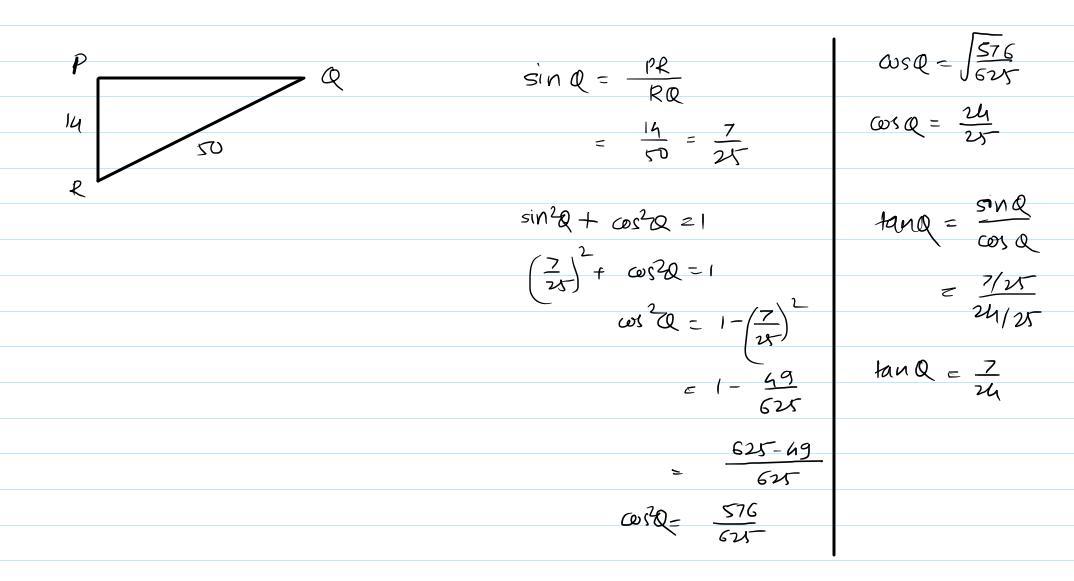 P
Q
14
50
R
sin Q = PR/RQ
= 14/50 = 7/25
sin²Q + cos²Q = 1
(7/25)² + cos²Q = 1
cos²Q = 1 - (7/25)²
= 1 - 49/625
= 625-49/625
cos²Q = 576/625
cosQ = √576/625
cosQ = 24/25
tanQ = sinQ/cosQ
= 7/25/24/25
tanQ = 7/24